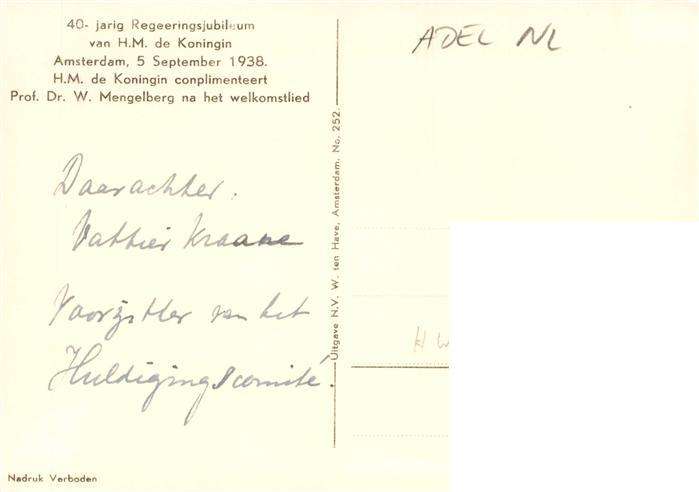 40- jarig Regeeringsjubileum
van H.M. de Koningin
Amsterdam, 5 September 1938.
H.M. de Koningin complimenteert
Prof. Dr. W. Mengelberg na het welkomstlied
ADEL NL
Daarachter.
Vattier Kraane
Voorzitter van het
Huldigingscomité
Uitgave N.V. W. ten Have, Amsterdam. No. 252.
H W
Nadruk Verboden